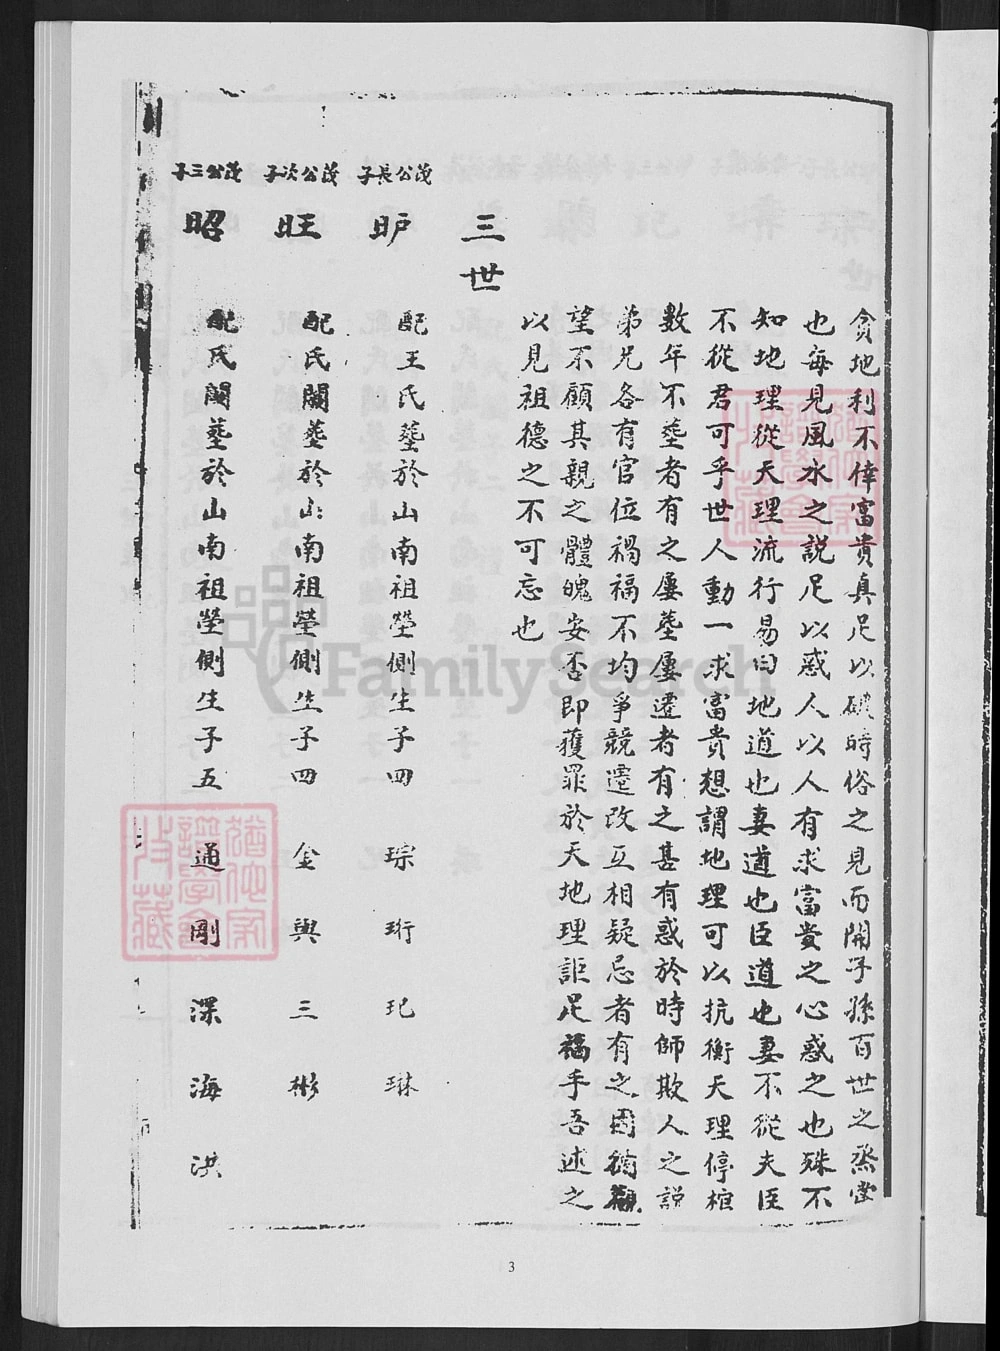 貪地利不倖富貴真足以破時俗之見而開子孫百世之烝嘗
也每見風水之説足以惑人以人有求富贵之心惑之也殊不
知地理從天理流行易曰地道也妻道也臣道也妻不從夫臣
不從君可乎世人動一求富貴想謂地理可以抗衡天理停棺
數年不塟者有之屢塟屢遷者有之甚有惑於時師欺人之説
弟兄各有官位禍福不均爭競遷改互相疑忌者有之因徇觀
望不顧其親之體魄安否即獲罪於天地理詎足福乎吾述之
以見祖德之不可忘也
三世
茂公長子
昈 配王氏塟於山南祖塋側生子四 琮 珩 玘 琳
茂公次子
旺 配氏闕塟於山南祖塋側生子四 金 輿 三 彬
茂公三子
昭 配氏闕塟於山南祖塋側生子五 通 剛 深 海 洪
譜學會
收藏
譜學會
收藏
FamilySearch
3